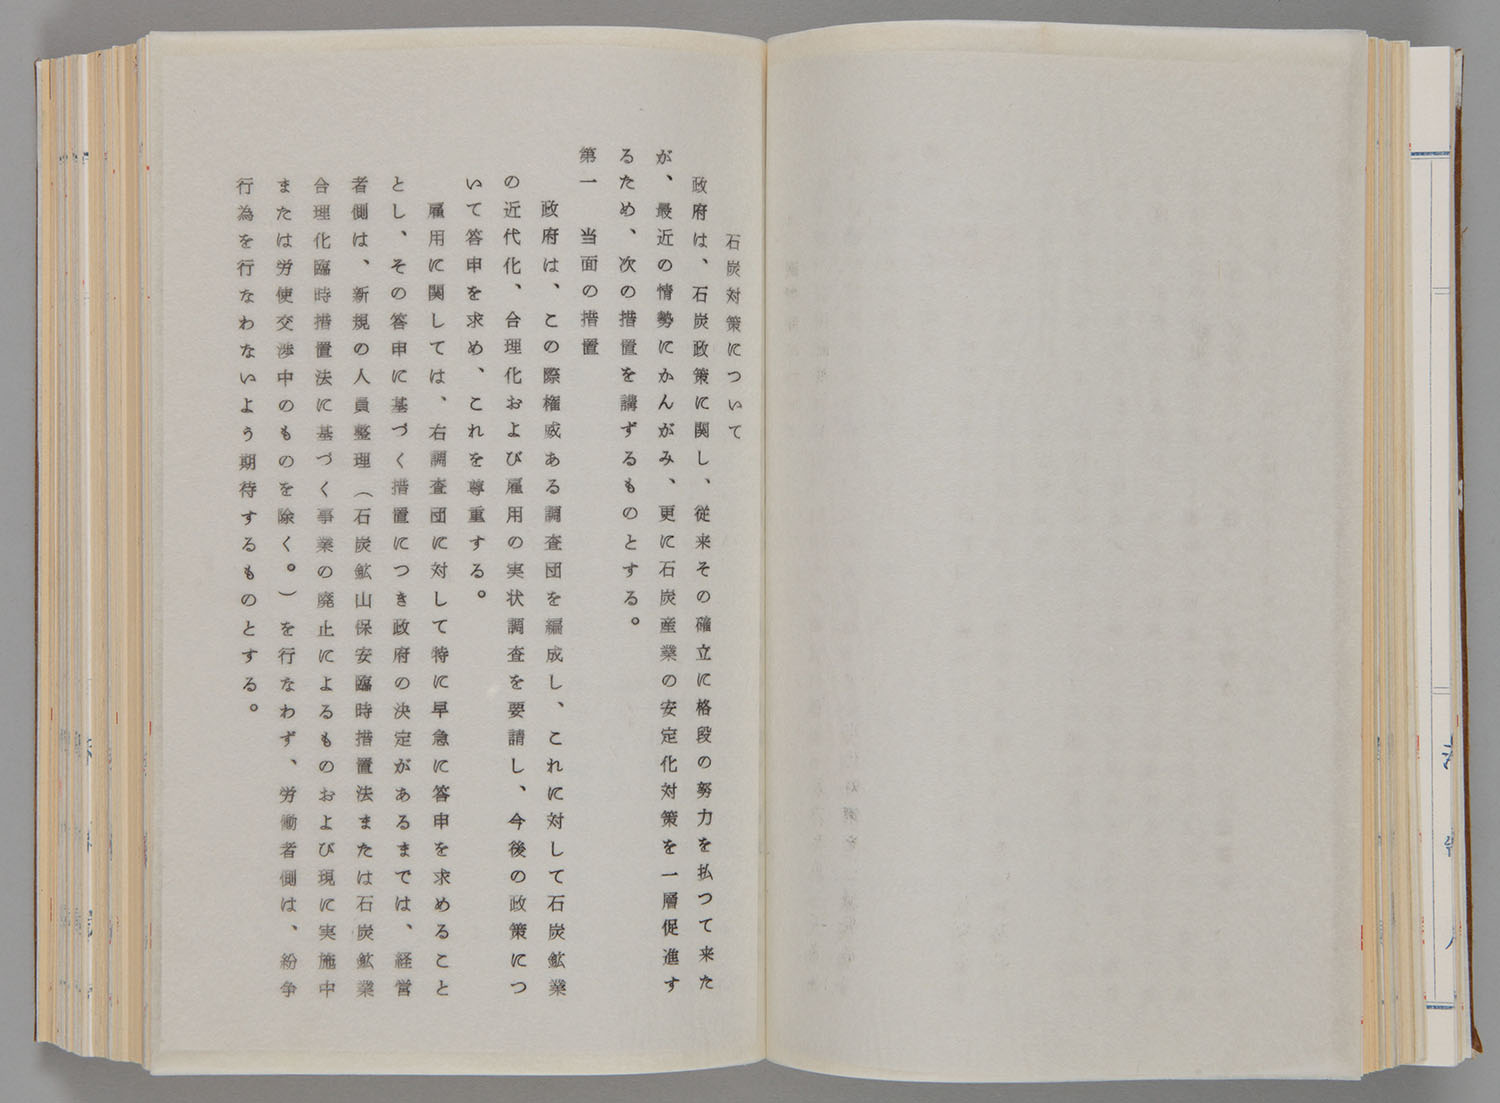 石炭対策について
政府は、石炭政策に関し、従来その確立に格段の努力を払つて来た
が、最近の情勢にかんがみ、更に石炭産業の安定化対策を一層促進す
るため、次の措置を講ずるものとする。
第一　当面の措置
政府は、この際権威ある調査団を編成し、これに対して石炭鉱業
の近代化、合理化および雇用の実状調査を要請し、今後の政策につ
いて答申を求め、これを尊重する。
雇用に関しては、右調査団に対して特に早急に答申を求めること
とし、その答申に基づく措置につき政府の決定があるまでは、経営
者側は、新規の人員整理（石炭鉱山保安臨時措置法または石炭鉱業
合理化臨時措置法に基づく事業の廃止によるものおよび現に実施中
または労使交渉中のものを除く。）を行なわず、労働者側は、紛争
行為を行なわないよう期待するものとする。